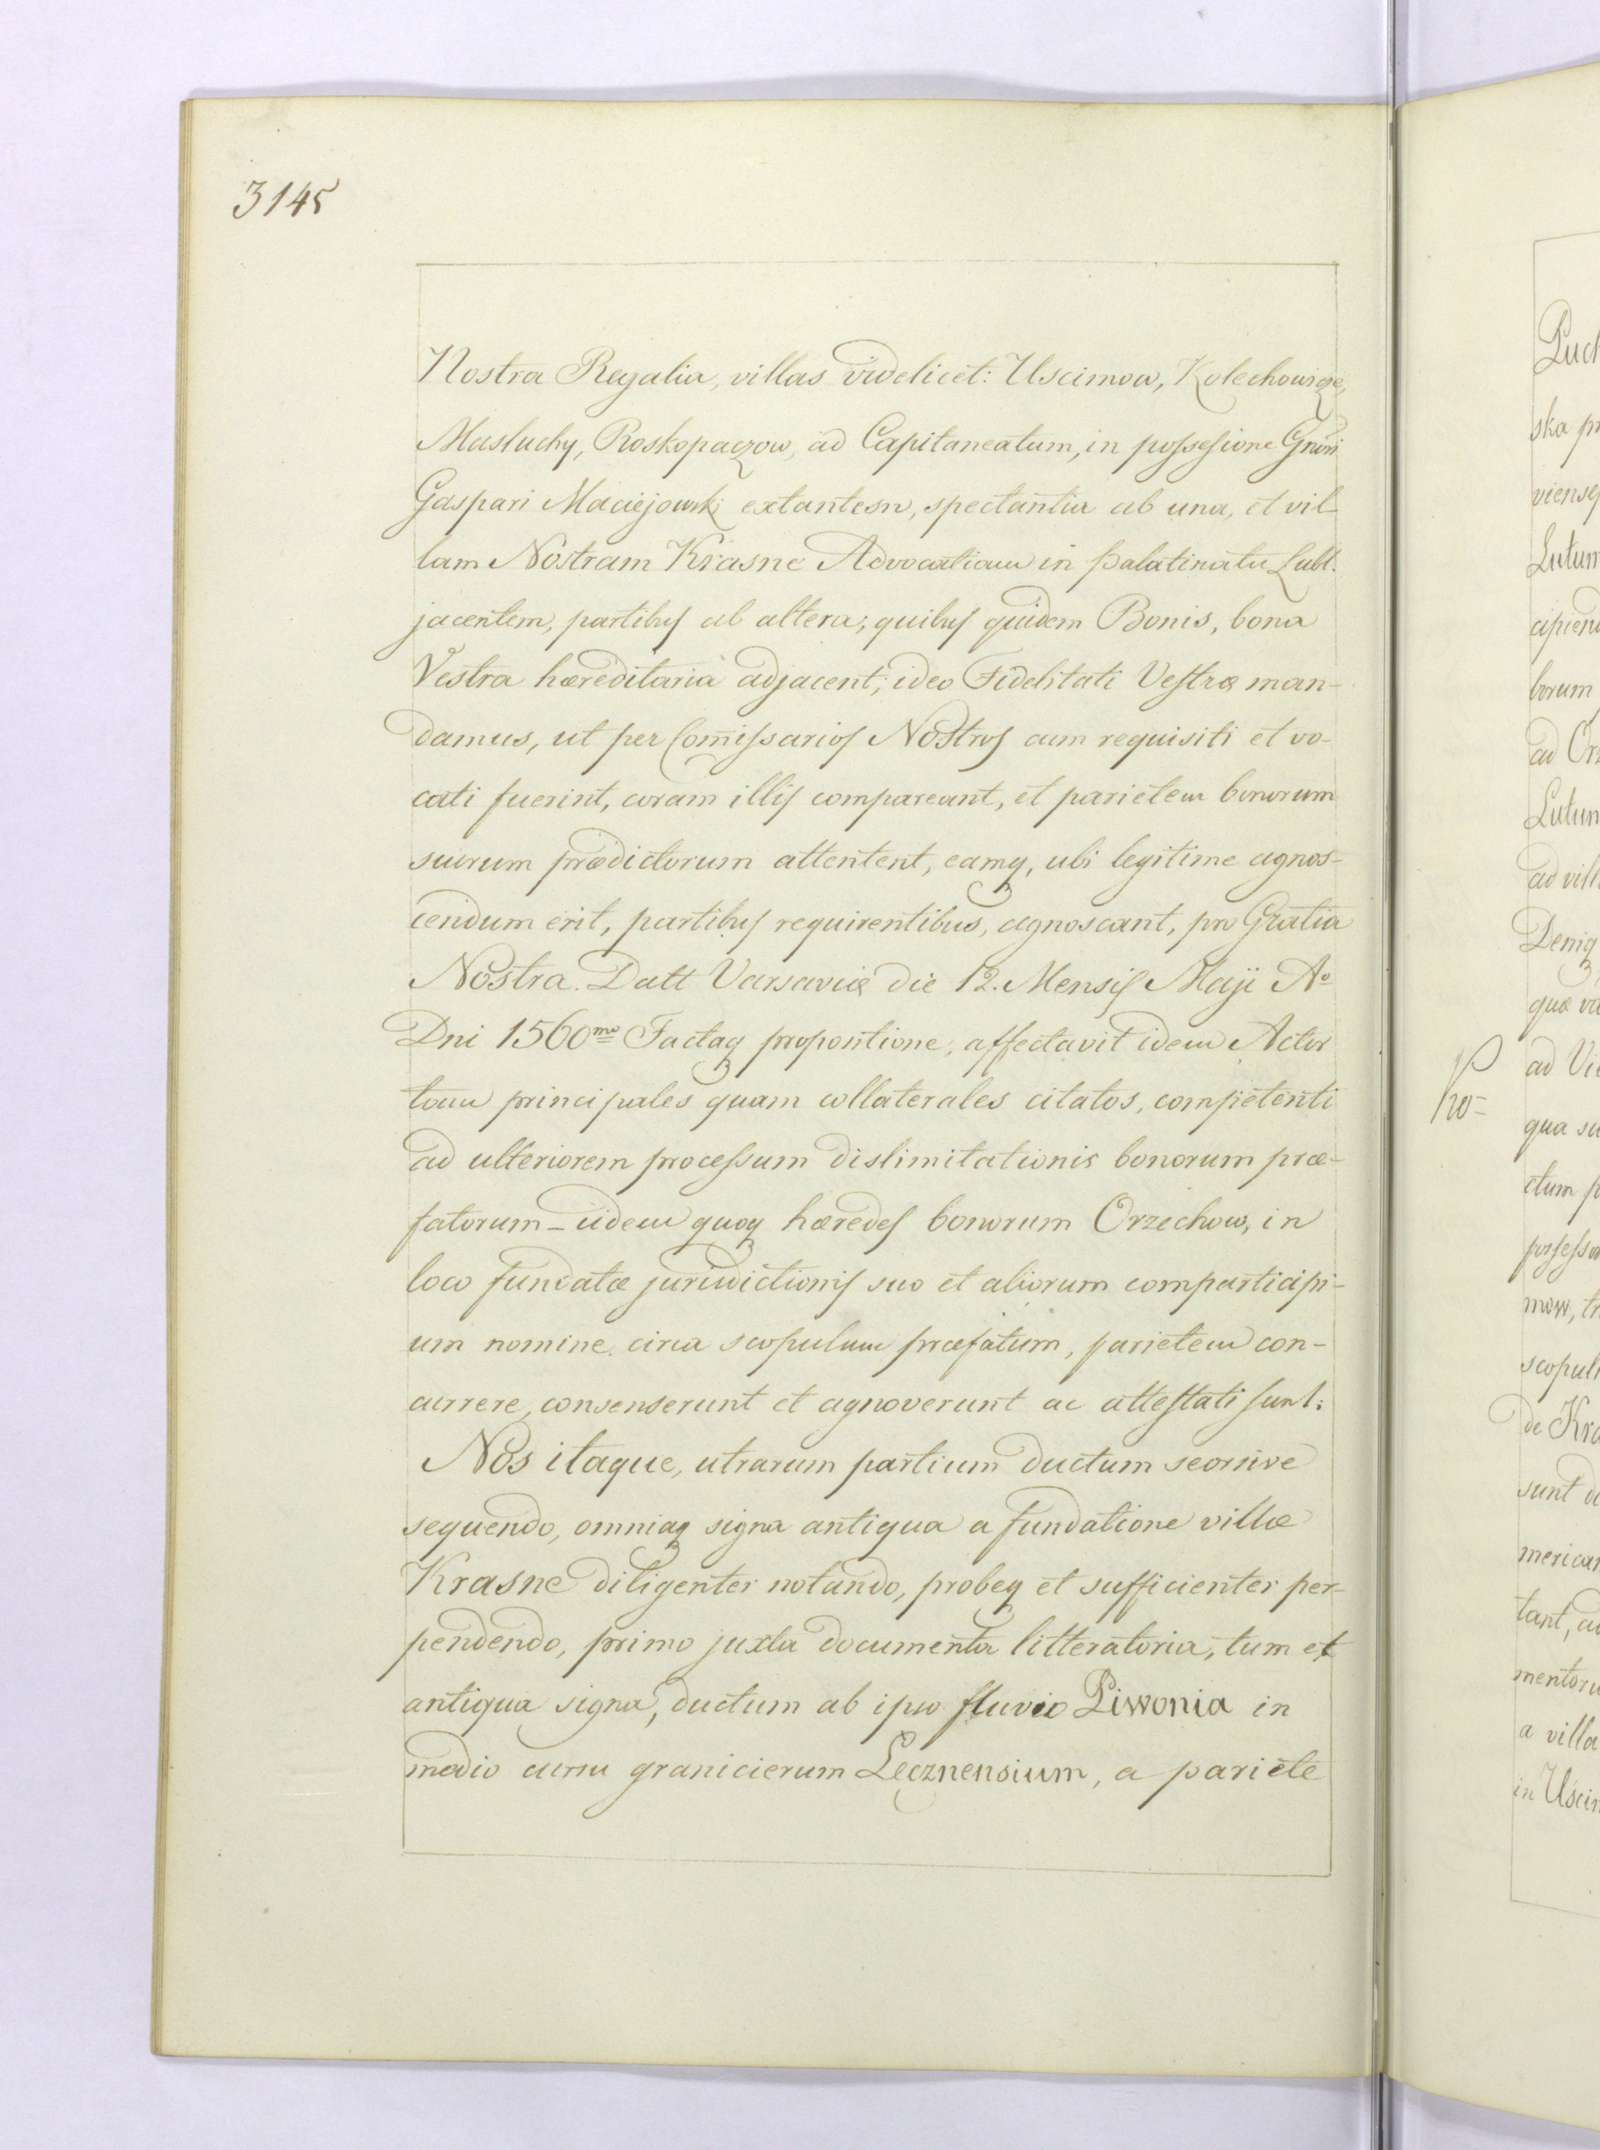 3145
Nostra Regalia, villas videlicet: Uscimow, Kolechowicze,
Masluchy, Roskopaczow, ad Capitaneatum, in possesione Grnsi
Gaspari Maciejowski extantesn, spectantia ab una, et vil-
lam Nostram Krasne Advocatiam in palatinatu Lubl.
jacentem, partibus ab altera; quibus quidem Bonis, bona
Vestra hæreditaria adjacent; ideo Fidelitati Vestræ man-
damus, ut per Comissarios Nostros cum requisiti et vo-
cati fuerint, coram illis compareant, et parietem bonorum
suorum prædictorum attentent, eamq, ubi legitime agnos-
cendum erit, partibus requirentibus, agnoscant, pro Gratia
Nostra. Datt Varsaviæ die 12. Mensis Maji Ao
Dni 1560mo Factaq propontione, affectavit idem Actor
tam principales quam collaterales citatos, competenti
ad ulteriorem processum dislimitationis bonorum præ-
fatorum - iidem quoq hæredes bonorum Orzechow, in
loco fundatæ jurisdictionis suo et aliorum comparticipi-
um nomine circa scopulum præfatum, parietem con-
currere, consenserunt et agnoverunt ac attestati sunt.
Nos itaque, utrarum partium ductum seorsive
sequendo, omniaq signa antiqua a fundatione villæ
Krasne diligenter notando, probeq et sufficienter per-
pendendo, primo juxta documenta litteratoria, tum et
antiqua signa, ductum ab ipso fluvio Piwonia in
medio cursu granicierum Lecznensium, a pariete
Pro-
ska
borum
ad
ad vill
Deniq
quæ
ad
qua
ctum
mow,
scopul
de Kra
sunt
tant,
a villa
in Uscim